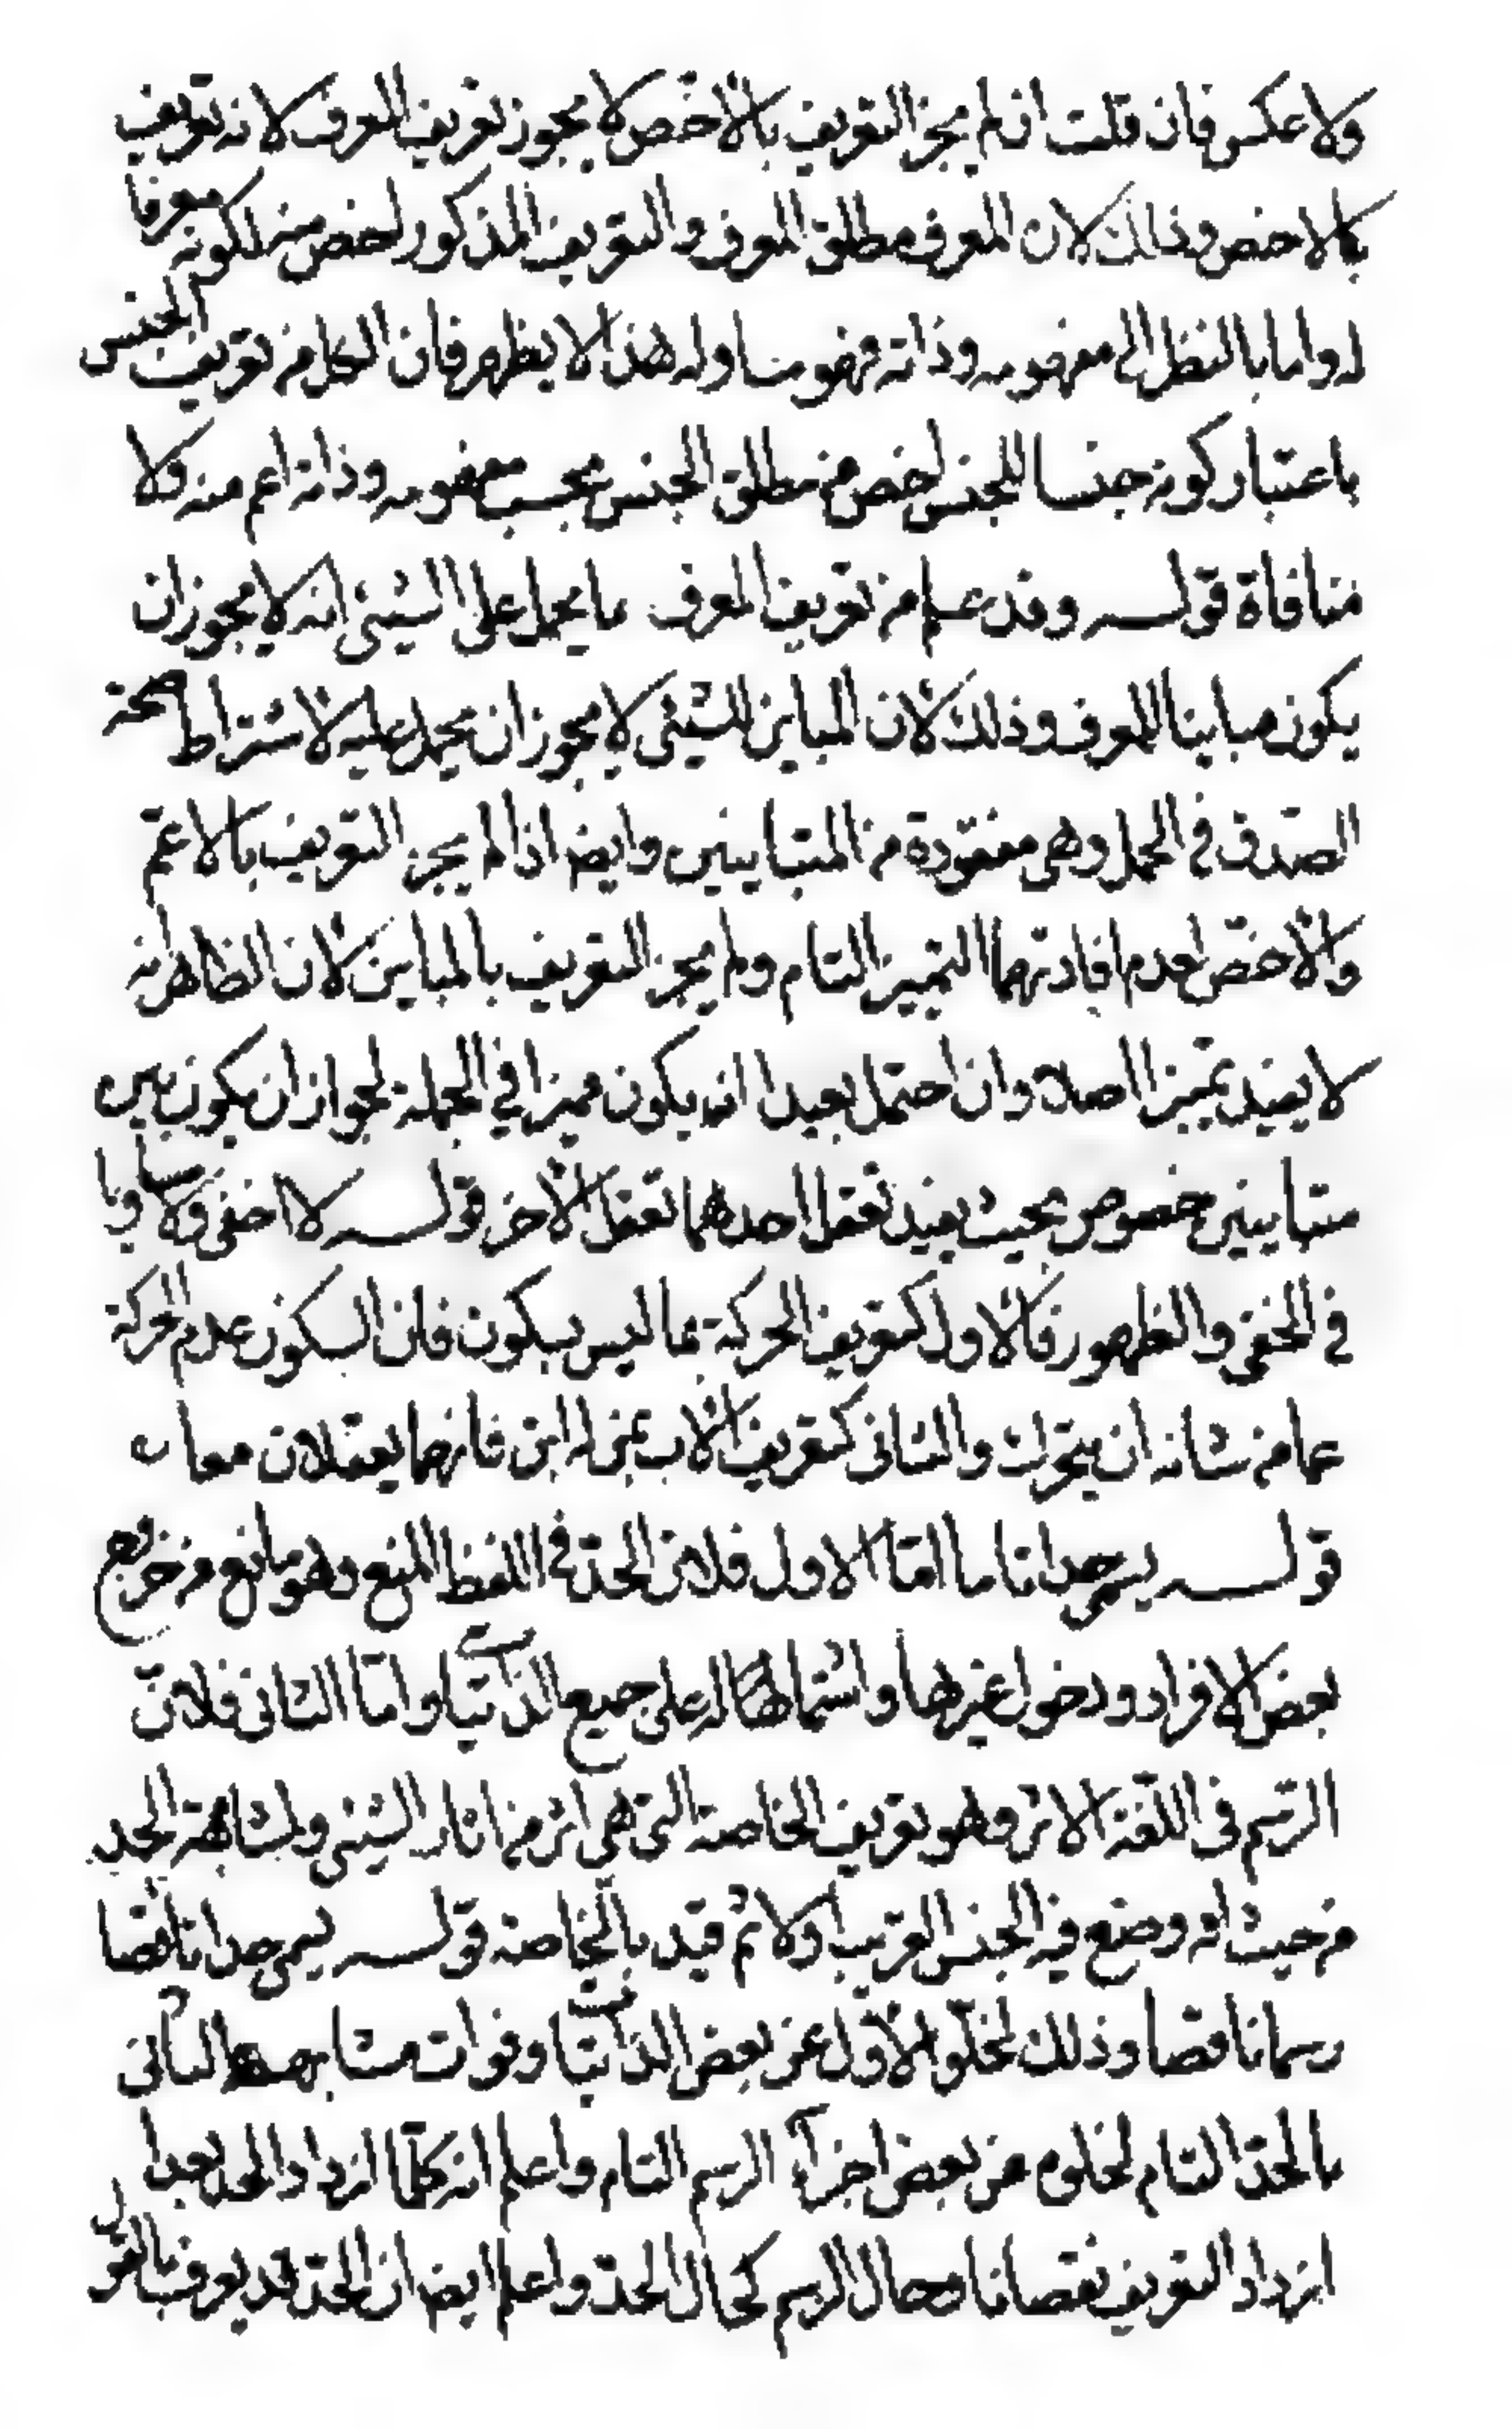 ولا عكس فان قلت ان لم يجز التعريف بالاخص لا يجوز تعريف المعرف لانه تعريف
بالاخص وذلك لان المعرف مطلق المعرف والتعريف المذكور اخص منه لكونه معرفا
له واما بالنظر الى مفهومه وذاته فهو مساو له هذا لا يظهر فان الكلام في تعريف الجنس
باعتبار كونه جنسا للجنس اخص من مطلق الجنس بحسب مفهومه وذاته اعم منه ولا
منافاة قولـه وقد علم من تعريف المعرف بما يحمل على الشيئ انه لا يجوز ان
يكون مباينا للمعرف وذلك لان المباين للشيئ لا يجوز ان يحمل عليه لاشتراط صحة
الصدق في الحمل وهى مفقودة من المتباينين وايضا اذا لم يجز التعريف بالاعم
والاخص لعدم افادتهما التمييز التام ولم يجز التعريف بالمباين لان الظاهر انه
لا يفيد تميزا اصلا وان احتمل بعيدا انه يكون مميزا في الجملة لجواز ان يكون بين
متباينين خصوص بحيث يفيد تعقل احدهما تعقل الاخر قولـه لا اخفى ولا مساويا
في الخفى والظهور فالاول كتعريف الحركة بما ليس بسكون فان السكون عدم الحركة
عما من شانه ان يتحرك والثانى كتعريف الاب بمن له ابن فانهما يعقلان معا
قولـه يسمى حدا تاما اما الاول فلان الحد في اللفظ المنع وهو مانع من خروج
بعض الافراد ودخول غيرها واشتمالها له على جميع الذاتيات واما الثانى فلان
الرسم في اللغة الاثر وهو تعريف الخاصة التى هى اثر من اثار الشيئ ولمشابهة الحد
من حيث انه وضع فيه الجنس القريب اولا ثم قيد بالخاصة قولـه يسمى حدا ناقصا
رسما ناقصا وذلك لخلو الاول عن بعض الذاتيات وفوات مشابهة الثانى
بالحد التام لخلوه عن بعض اجزاء الرسم التام واعلم انه كلما ازداد الحد بعدا
ازداد التعريف نقصانا وحال الرسم كحال الحد واعلم ايضا ان الحد قد يعرف بالقول